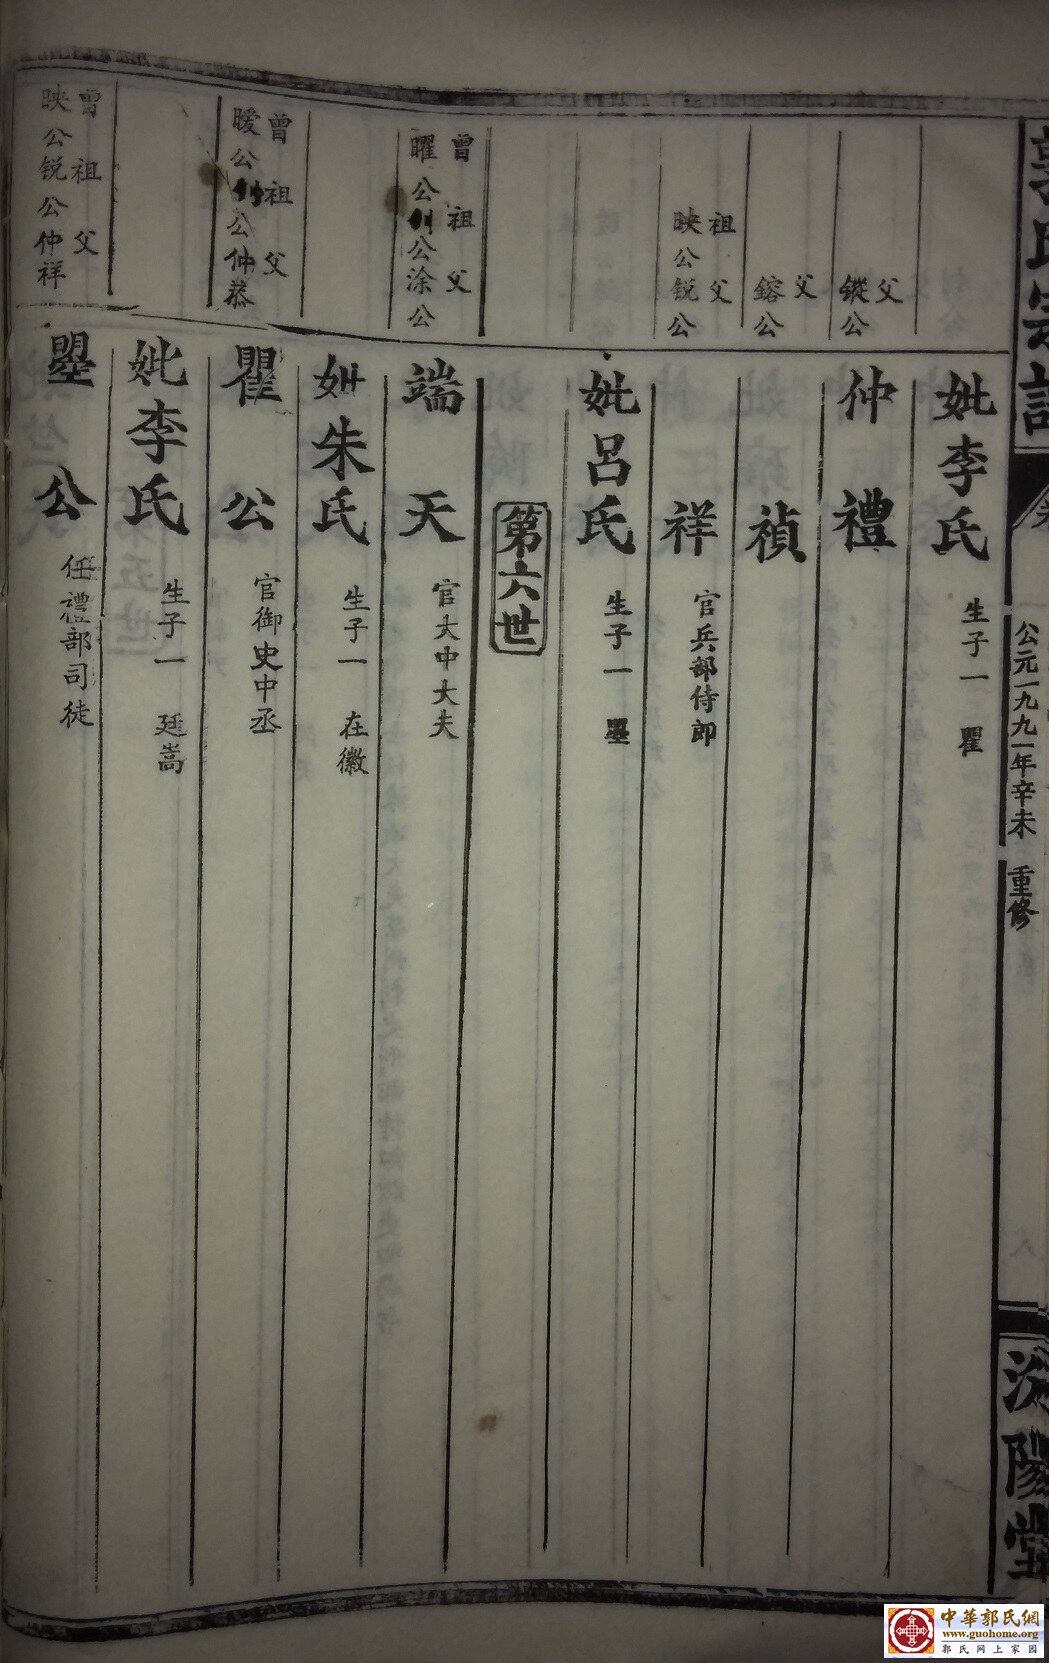 郭氏宗譜
公元一九九一年辛未
重修
汾陽堂
妣李氏 生子一 瞿
父
鏦公
仲禮
父
鎔公
禎
祖父
映公銳公
祥 官兵部侍郎
妣呂氏 生子一 曌
第六世
曾祖父
曜公釗公涂公
端天 官大中大夫
妣朱氏 生子一 在徽
曾祖父
曖公釗公仲恭
瞿公 官御史中丞
妣李氏 生子一 廷嵩
曾祖父
映公銳公仲祥
曌公 任禮部司徒
中華郭氏網
www.guohome.org
郭氏网上家园